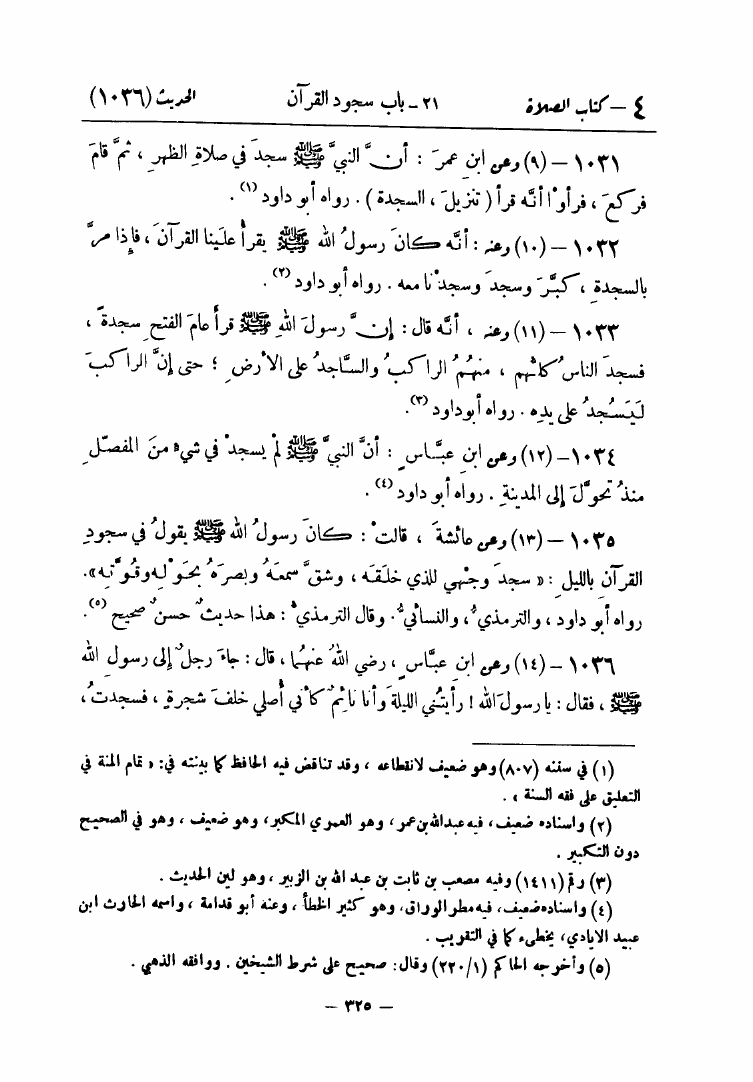 ٤ – كتاب الصلاة ٢١ - باب سجود القرآن الحديث (١٠٣٦)
١٠٣١ – (٩) وعن ابنِ عمرَ : أنَّ النبيَّ ﷺ سجدَ في صلاةِ الظهرِ ، ثمَّ قامَ
فركعَ ، فرأوْا أنَّه قرأ ( تنزيلَ ، السجدة ) . رواه أبو داود (١) .
١٠٣٢ – (١٠) وعنه : أنَّه كانَ رسولُ الله ﷺ يقرأُ علَينا القرآنَ ، فإِذا مرَّ
بالسجدةِ ، كبَّرَ وسجدَ وسجدْنا معه . رواه أبو داود (٢) .
١٠٣٣ – (١١) وعنه ، أنَّه قال : إنَّ رسولَ اللهِ ﷺ قرأ عامَ الفتحِ سجدةً ،
فسجدَ الناسُ كلُّهم ، منهُمُ الراكبُ والسَّاجدُ على الأرضِ ؛ حتى إنَّ الراكبَ
لَيَسْجُدُ على يدِه . رواه أبوداود (٣) .
١٠٣٤ – (١٢) وعن ابنِ عبَّاسٍ : أنَّ النبيَّ ﷺ لمْ يسجدْ في شيءٍ منَ المفصّلِ
منذُ تحوَّلَ إلى المدينةِ . رواه أبو داود (٤) .
١٠٣٥ – (١٣) وعن عائشةَ ، قالتْ : كانَ رسولُ الله ﷺ يقولُ في سجودِ
القرآنِ بالليلِ : « سجدَ وَجْهي للذي خلَقَه ، وشقَّ سمعَهُ وبصرَهُ بحَوْلِه وقُوَّتِه ».
رواه أبو داود ، والترمذيُّ ، والنسائيُّ. وقال الترمذيُّ : هذا حديثٌ حسنٌ صحيح (٥) .
١٠٣٦ – (١٤) وعن ابنِ عبَّاسٍ ، رضي اللهُ عنهُما ، قال : جاءَ رجلٌ إلى رسولِ الله
ﷺ ، فقال : يا رسولَ الله ! رأيتُني الليلةَ وأنا نائِمٌ كأني أُصلي خلفَ شجرةٍ ، فسجدتُ ،
(١) في سننه (٨٠٧) وهو ضعيف لانقطاعه ، وقد تناقض فيه الحافظ كما بينته في : « تمام المنة في
التعليق على فقه السنة » .
(٢) واسناده ضعيف ، فيه عبدالله بن عمر ، وهو العمري المكبر ، وهو ضعيف ، وهو في الصحيح
دون التكبير .
(٣) رقم (١٤١١) وفيه مصعب بن ثابت بن عبد الله بن الزبير ، وهو لين الحديث .
(٤) واسناده ضعيف ، فيه مطر الوراق، وهو كثير الخطأ ، وعنه أبو قدامة ، واسمه الحارث ابن
عبيد الايادي، يخطىء كما في التقريب .
(٥) وأخرجه الحاكم (٢٢٠/١) وقال : صحيح على شرط الشيخين . ووافقه الذهبي .
– ٣٢٥ –